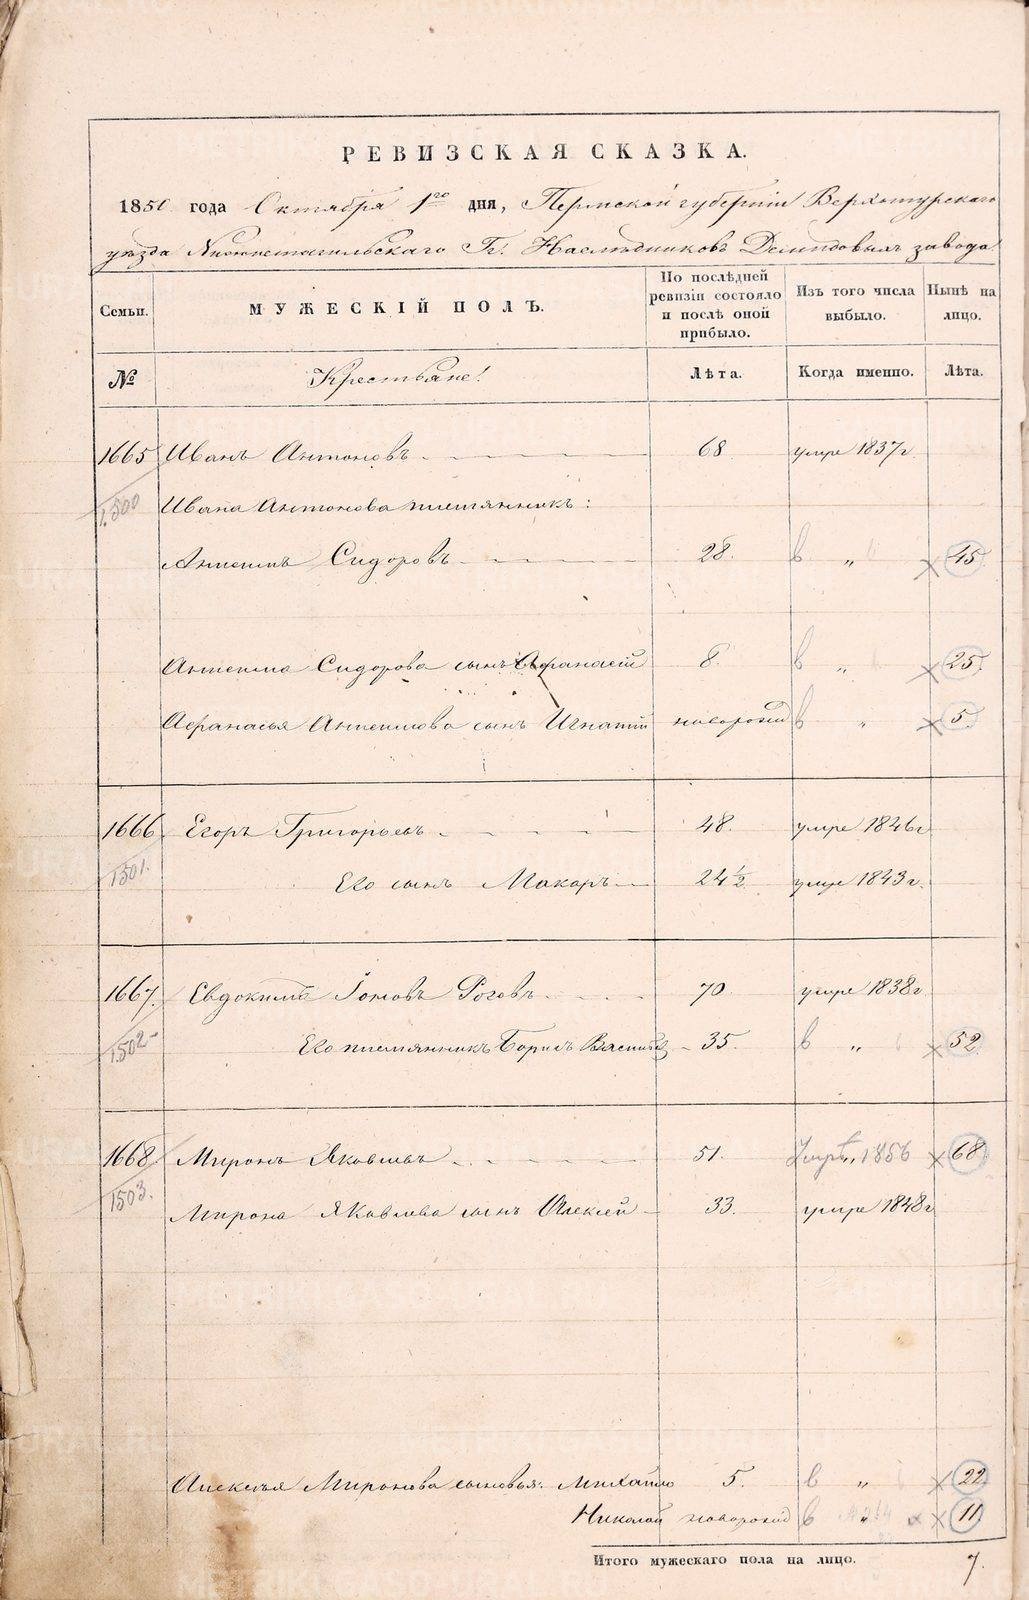 РЕВИЗСКАЯ СКАЗКА.
1850 года Октября 1го дня, Пермской губерніи Верхотурскаго
уѣзда Нижнетагильскаго Гг. Наслѣдниковъ Демидовыхъ завода
Семьи. МУЖЕСКІЙ ПОЛЪ. По послѣдней ревизіи состояло и послѣ оной прибыло. Изъ того числа выбыло. Нынѣ на лицо.
№ Крестьяне! Лѣта. Когда именно. Лѣта.
1665 Иванъ Антоновъ 68. умре 1837 г.
1500 Ивана Антонова племянникъ:
Антипъ Сидоровъ 28. в „ × 45
Антипа Сидорова сынъ Афанасій 8. в „ × 25.
Афанасья Антипова сынъ Игнатій новорожд в „ × 5.
1666 Егоръ Григорьевъ 48. умре 1846 г
1501. Его сынъ Макаръ 24 1/2 умре 1843 г.
1667. Евдокимъ Іоновъ Роговъ 70. умре 1838 г.
1502 Его племянникъ Борисъ Васильев 35. в „ × 52.
1668 Миронъ Яковлевъ 51. Умръ „ 1856 × 68
1503. Мирона Яковлева сынъ Алексей 33. умре 1848 г
Алексея Миронова сыновья: Михайло 5. в „ × 22
Николай новорожд в „ × × 11
Итого мужескаго пола на лицо. 7.
METRIKI.GASO-URAL.RU